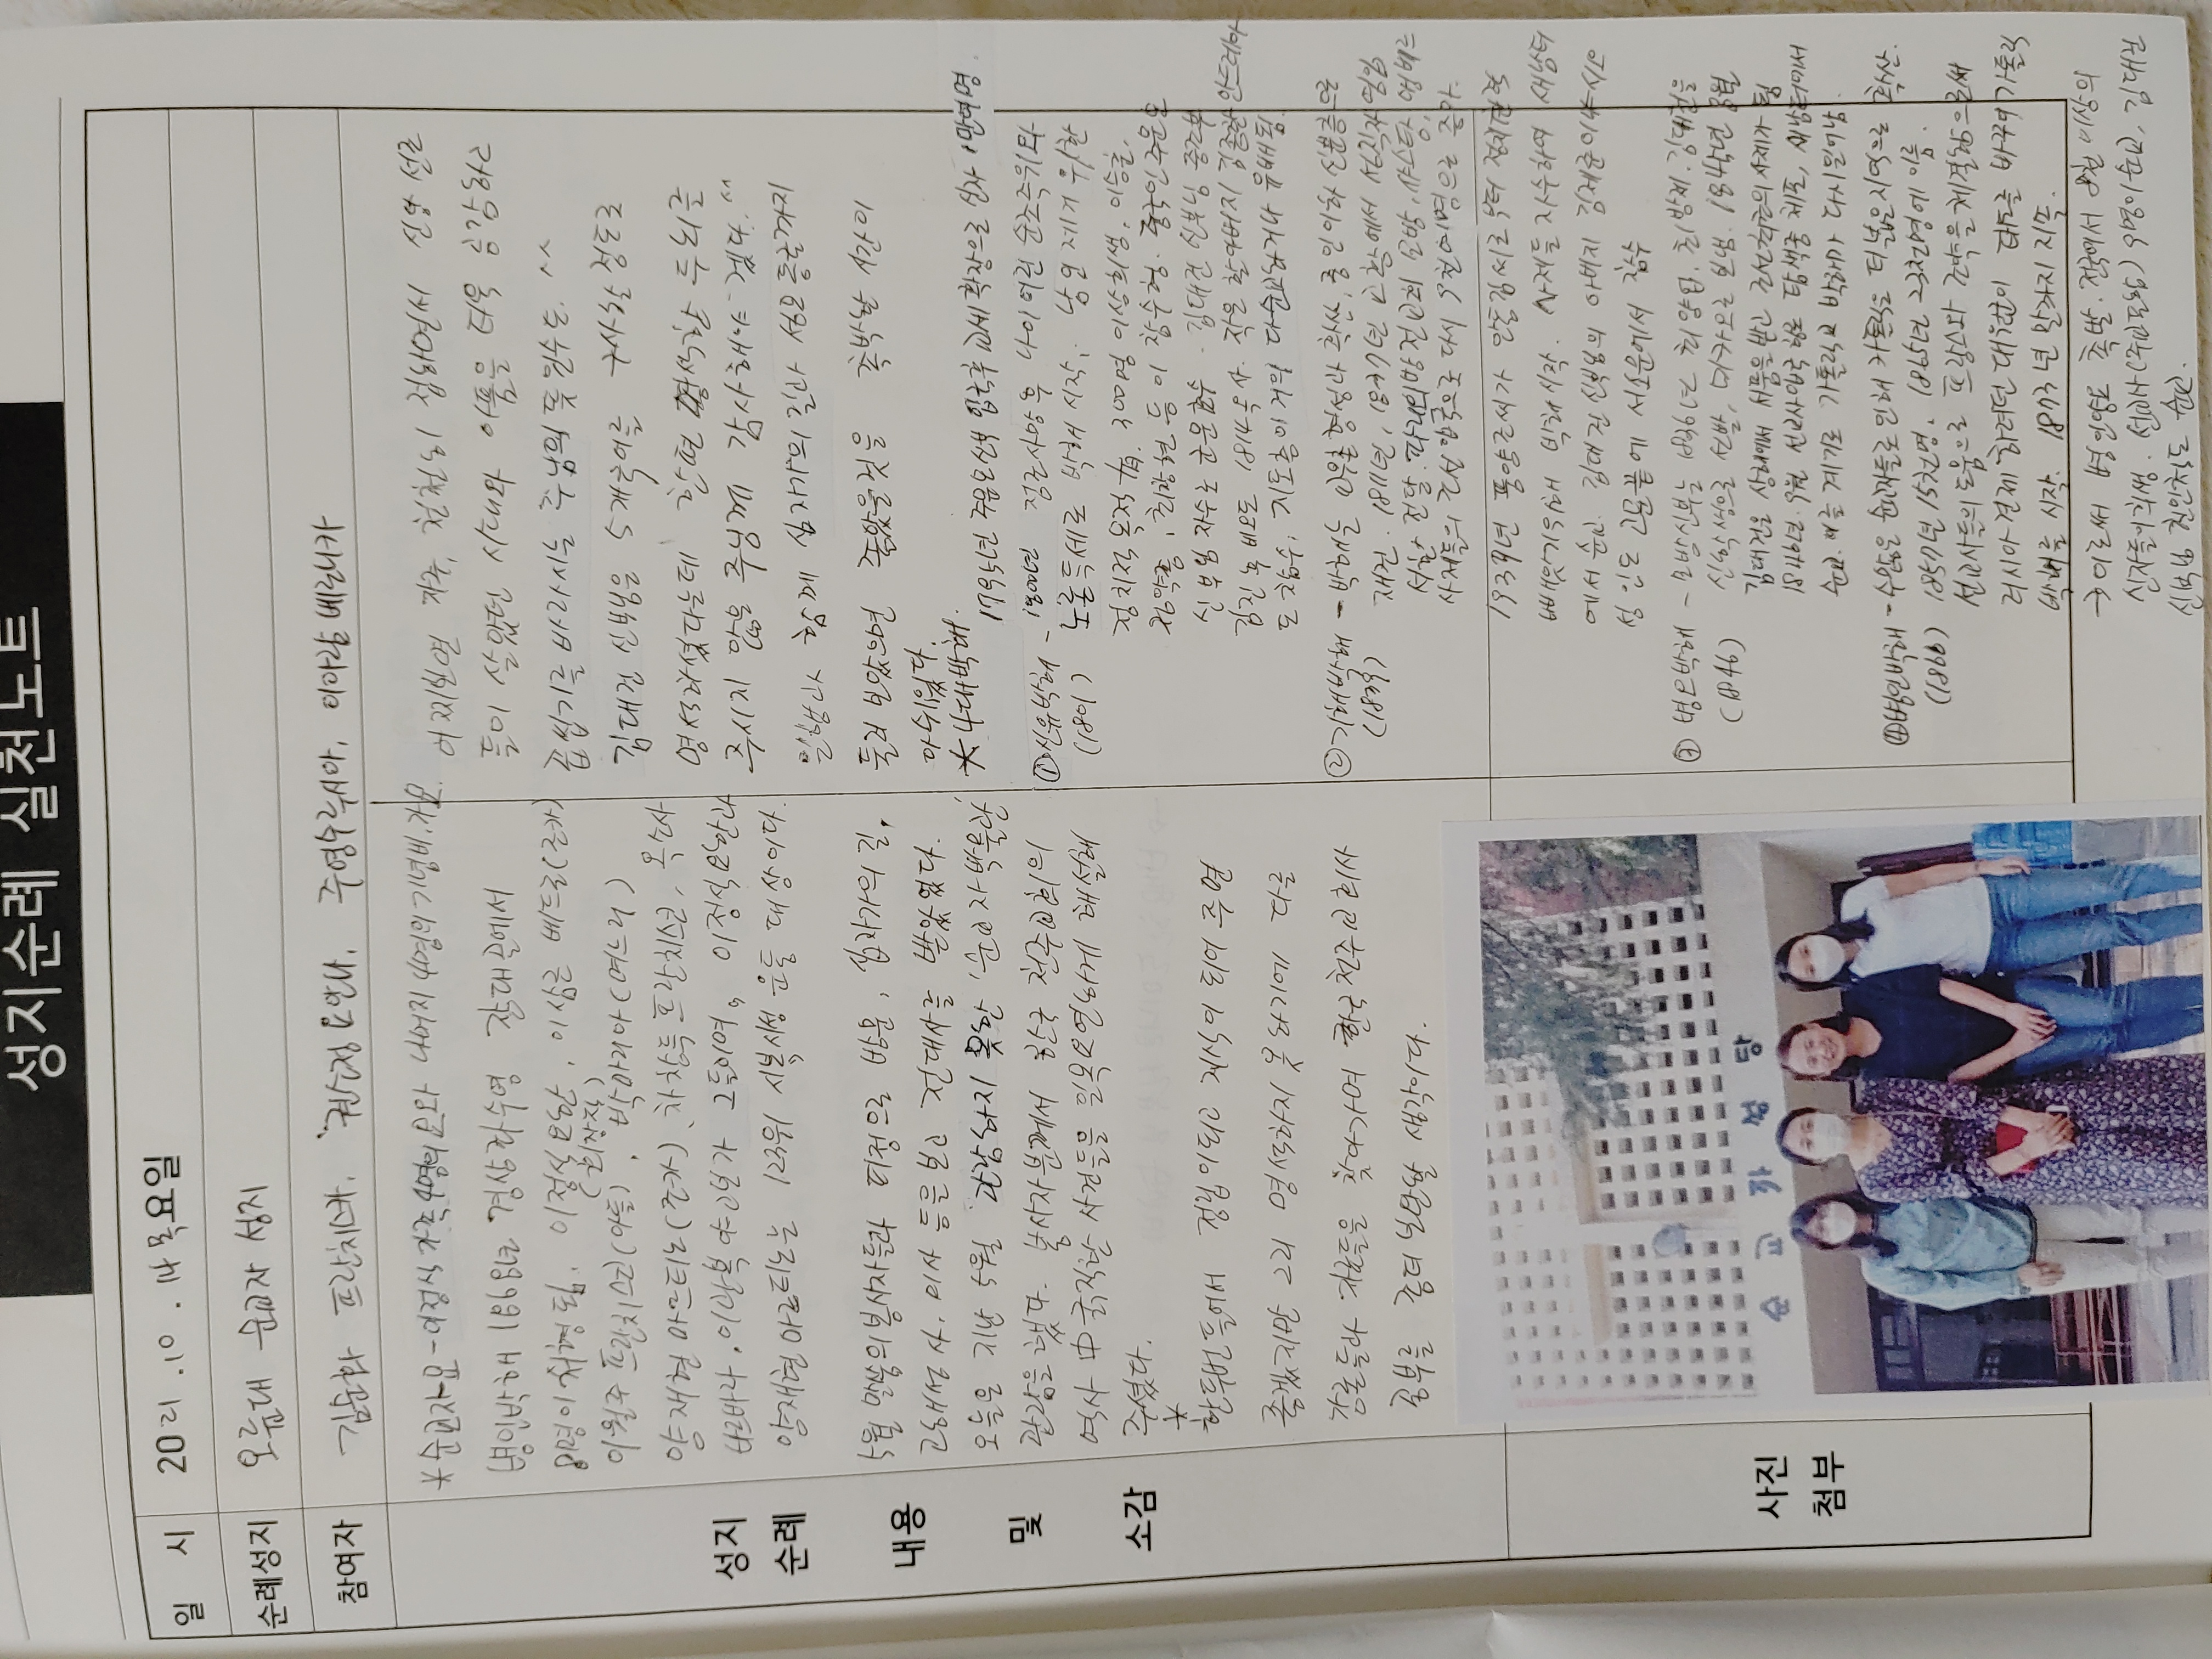 성지순례 실천노트
일 시
2021.10.14 목요일
순례성지
오륜대 순교자 성지
참여자
김순화 프란치스카, 권순정 요안나, 주영수 루시아, 이아람 베로니카
성지
순례
내용
및
소감
* 순교자묘 - 이정식 가족 4명의 묘와 나머지 4명의 기념비, 가묘.
병인박해 1868년 경상좌수영 장대골에서
8명이 처형됨. 이정식 요한, 이삼근 베드로(조카)
(회장직)
이월주 프란치스코(아들), 박마리아(며느리)
양재현 마르티노(조카), 차장득 프란치스코, 옥소사
바르바라, 이관복 야고보가 그들이며, 이정식 요한과
양재현 마르티노는 123위 시복시성 운동 대상이다.
5월 말씀의 봉사자들과 피정으로 방문, 십자가의 길,
고해성사, 미사 등을 보고 전대사를 받았었다.
오늘은 지난 5월 관람하지 못한 '순교자박물관'
관람을 했다. 봉사자분께서 한국 천주교회의
역사 中 굵직한 사건들을 일목요연하게 해설해
주셨다.
*
한두번 들어서 정립이되고 지식이 되어 주면
좋겠지만 그리 명석하지 못하기에 다른
강론들과 자료들을 찾아가며 한국천주교회사
공부를 좀더 보탄할 생각이다.
어찌보면 자주, 천천히 접하면서 신앙 선조
들이 살았던 시대와 아픔을 더욱 공감하고
곱씹기를 바라시는 주님의 뜻일수도.^^
김대건 신부님은 5개국어를 구사할 정도로
명석하셨다는데 한편 명석한 두뇌를
주시지 않은 주님께 감사해야 겠다.^^
일행과 함께 십자가의 길과 성모동굴까지
둘러 보았으면 좋았을것을 촉박한 시간이
아쉬웠다.
* 4대박해.
1795년 주문모신부 입국후 교세 확장으로 신자 1만여명
① 신유박해 - 1800년 정조사망후 나이어린 순조즉위와
(1801)
노론득세로 박해 시작, 남인 제거 위한
정치적 목적 有. 300명 이상희생, 이승훈,
정약종, 최창현 등이 참수형. 중국인 주문모
신부님 자수로 군문효수. 김대건 신부님 증조부
김진후 비오도 1814옥사. 작은 할아버지 김종한 안드레아
도 참수, 지도층이 거의 다순교하거나 유배됨.
② 기해박해 - 박해는 교우촌 형성과 확산, 중인이하 신분층으로
(1839)
재건. 1811년, 1837년 교황에서 성직자 영입
서한 전달. 파리외방전교회 모방, 샤스탕, 앵베르
사제들의 조선 입국으로 다시 9천여명으로 증가.
1937년 풍양조씨가 안동김씨로부터 정치권력
빼앗기위해 박해시작. 사제들 자수하여 새남터
에서 순교. 김대건신부님의 아버지 김제준이냐시오
성인도 고문끝에 서소문에서 참수
③ 병오박해 - 모방신부는 1836년 최양업, 최방제, 김대건을
(1846)
신학생으로 선발, 마카오로 보냄. 1845년 8월
김대건은 상해에서 서품을 받고 조선최초의 사제가 됨
1846년 9월 선교사입국 항로 탐색중 체포, 새남터에서
순교. 이를 계기로 가톨릭교 박해가 다시일어남.
④ 병인박해 - 수많은 순교자들로 인해 카톨릭은 더 넓은지역으로 확산.
(1866)
1857년 15천명, 1865년 23천명에 이름.
선교사들의 도움으로 프랑스와 조약을 체결함으로써
러시아 견제 하려던 대원군이 태도를 바꾸어 가톨릭
박해를 시작. 1873년 말까지 지속.
→ 이로써 병인양요 촉발. 전국에서 8천 이상의
신자들이희생. 선교사(주교포함) 9명이순교, 김대건
신부님 친인척도 순교.
사진
첨부
순교자성당